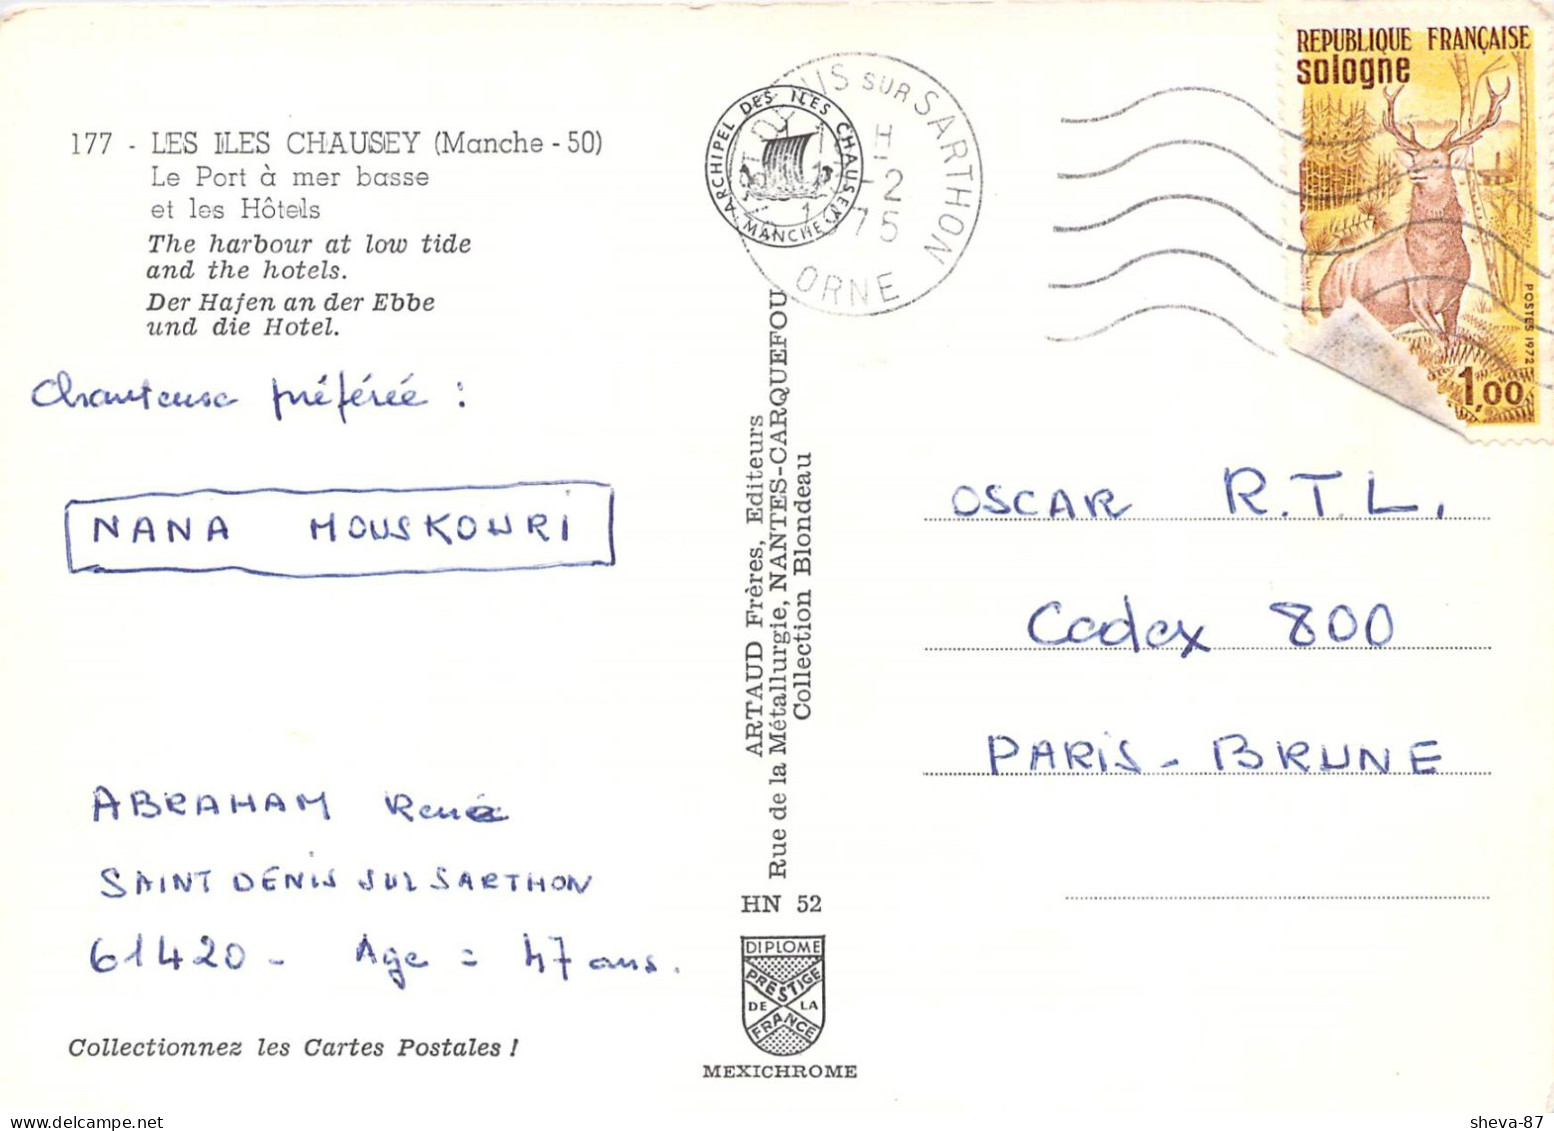 177 - LES ILES CHAUSEY (Manche - 50)
Le Port à mer basse
et les Hôtels
The harbour at low tide
and the hotels.
Der Hafen an der Ebbe
und die Hotel.
Chanteuse préférée :
NANA MOUSKOURI
ABRAHAM Renée
SAINT DENIS SUR SARTHON
61420 - Age = 47 ans.
Collectionnez les Cartes Postales !
ARCHIPEL DES ILES CHAUSEY
(MANCHE)
DENIS SUR SARTHON
H
-2
75
ORNE
ARTAUD Frères, Editeurs
Rue de la Métallurgie, NANTES-CARQUEFOU
Collection Blondeau
HN 52
DIPLOME
PRESTIGE
DE LA
FRANCE
MEXICHROME
REPUBLIQUE FRANÇAISE
sologne
POSTES 1972
1,00
OSCAR R.T.L.
Cedex 800
PARIS - BRUNE
sheva-87